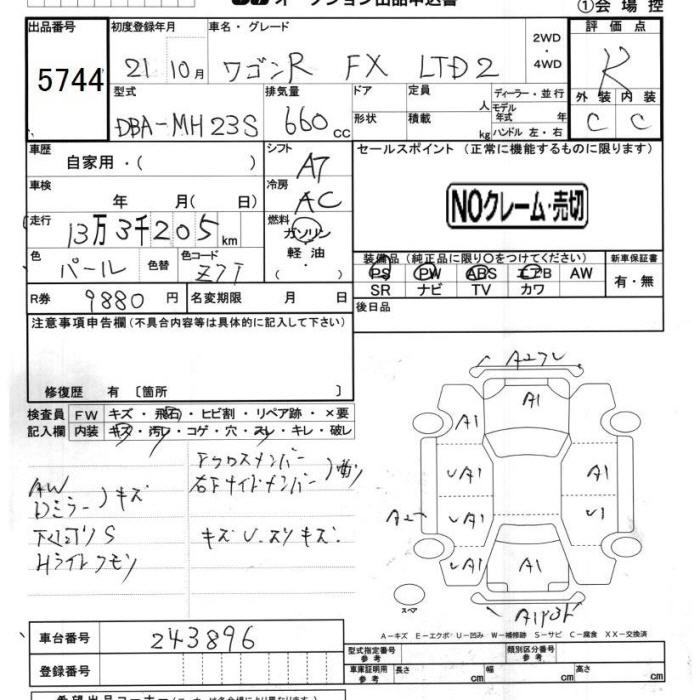 オークション出品申込書 ①会場控
出品番号 初度登録年月 車名・グレード 2WD・4WD 評価点
5744 21 10月 ワゴンR FX LTD2 R
型式 排気量 ドア 定員 人 ディーラー・並行 外装 内装
DBA-MH23S 660cc 形状 積載 kg モデル年式 年 ハンドル 左・右 C C
車歴 自家用・( ) シフト AT セールスポイント (正常に機能するものに限ります)
車検 年 月( 日) 冷房 AC NOクレーム・売切
走行 13万3千205km 燃料 ガソリン・軽油・( )
色 パール 色替 色コード Z7T 装備品 (純正品に限り○をつけてください) 新車保証書
PS PW ABS エアB AW 有・無
SR ナビ TV カワ
R券 9880円 名変期限 月 日 後日品
注意事項申告欄(不具合内容等は具体的に記入して下さい)
修復歴 有 〔箇所 〕
検査員記入欄 FW キズ・飛石・ヒビ割・リペア跡・×要
内装 キズ・汚れ・コゲ・穴・スレ・キレ・破レ
AW
Dミラー )キズ
Hライトクモリ
キズU.スリキズ.
A1
A1
UA1 A1
UA1 U1
UA1 A1
スペア
A-キズ E-エクボ U-凹み W-補修跡 S-サビ C-腐食 XX-交換済
車台番号 243896 型式指定番号 参考 類別区分番号 参考
登録番号 車庫証明用 参考 長さ cm 幅 cm 高さ cm